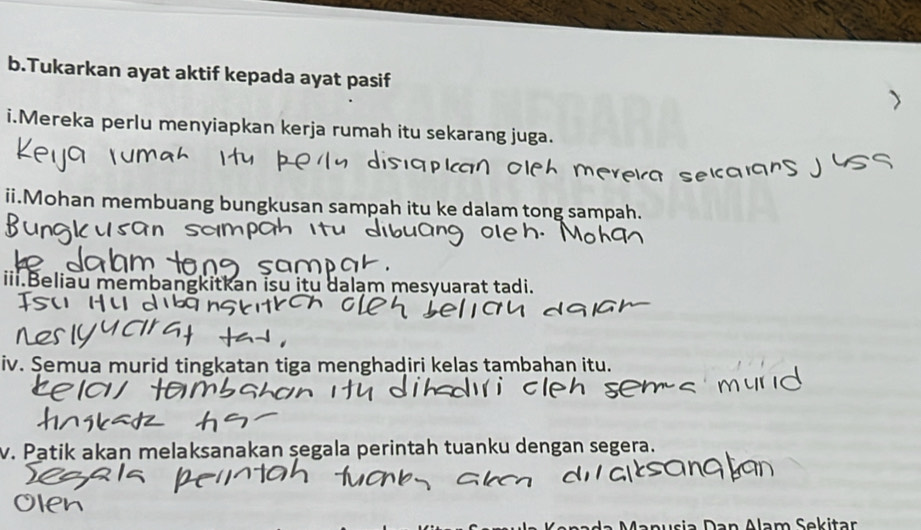 b.Tukarkan ayat aktif kepada ayat pasif
i.Mereka perlu menyiapkan kerja rumah itu sekarang juga.
Keya rumah itu perlu disiapkan oleh mereka sekarang juga
ii.Mohan membuang bungkusan sampah itu ke dalam tong sampah.
Bungkusan sampah itu dibuang oleh. Mohan
ke dalam tong sampar.
iii.Beliau membangkitkan isu itu dalam mesyuarat tadi.
Isu itu dibangkitkan oleh beliau dalam
tad.
iv. Semua murid tingkatan tiga menghadiri kelas tambahan itu.
kelas tambahan itu dihadiri oleh semua murid
v. Patik akan melaksanakan segala perintah tuanku dengan segera.
Segala perintah tuanku akan dilaksanakan
Olen